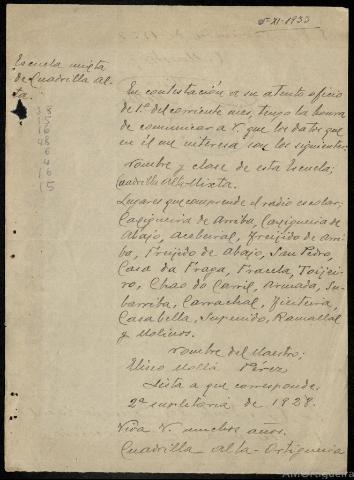 -XI-1933
Escuela mixta
de Cuadrilla al-
ta.
En contestación a su atento oficio
de 1º del corriente mes, tengo la honra
de comunicar a V. que los datos que
en él me interesa son los siguientes:
Nombre y clase de esta Escuela;
Cuadrilla Alta-Mixta.
Lugares que comprende el radio escolar;
Casqueira de Arriba, Casqueira de
Abajo, Acebeiral, Freijido de Arri-
ba, Freijido de Abajo, San Pedro,
Casa da Fraga, Fraceta, Toijei-
ro, Chao do Carril, Armada, Su-
barriba, Carrachal,
Casabella, Ramallal
y Molinos.
Nombre del Maestro;
Eliseo Mollá Pérez
Lista a que corresponde.
2ª supletoria de 1928.
Viva V. muchos años.
Cuadrilla Alta-Ortigueira